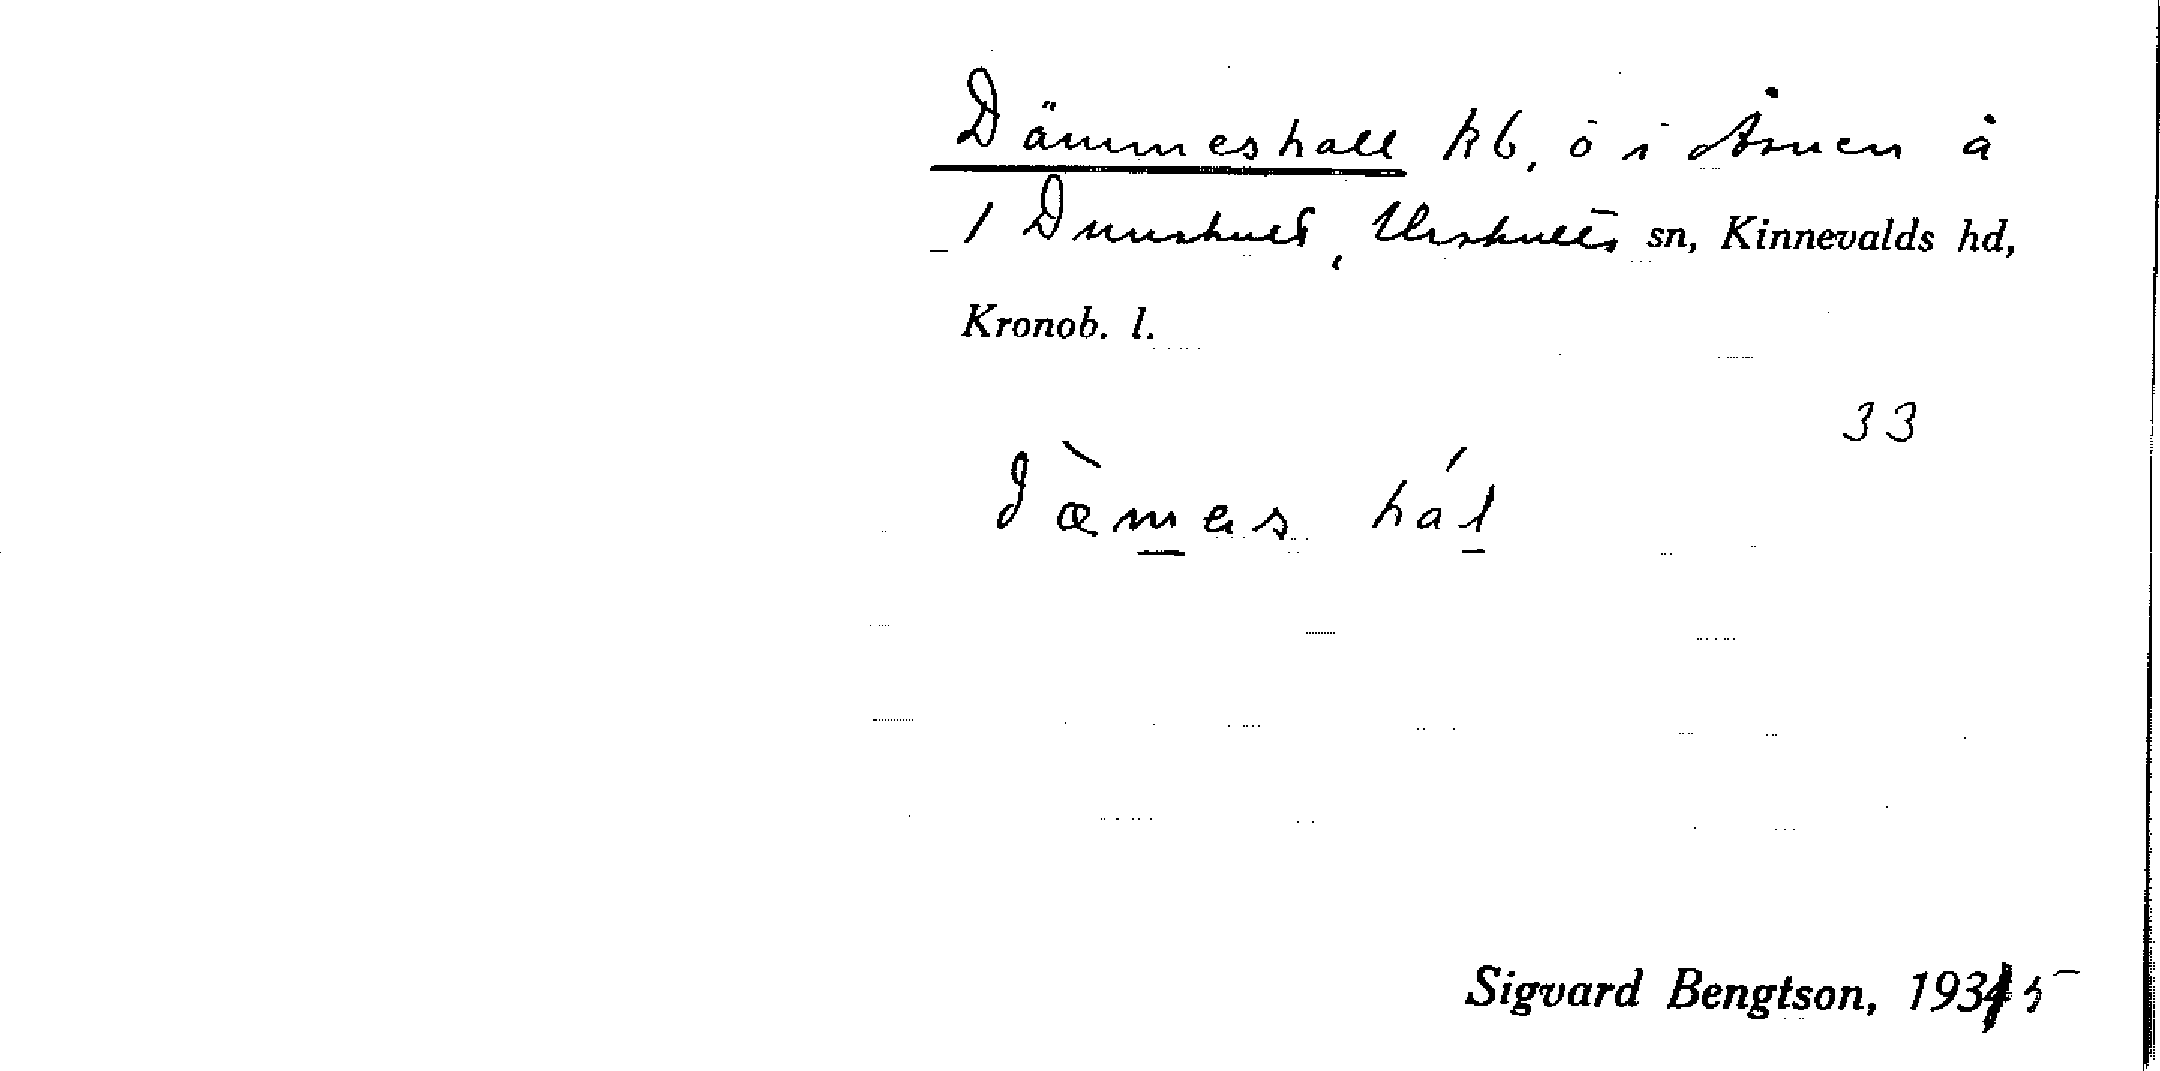 Dämmeshall kb, ö i Åsnen å
1 Dunshult, Urshults sn, Kinnevalds hd,
Kronob. l.
33
dæ̀mas hál
Sigvard Bengtson, 1935